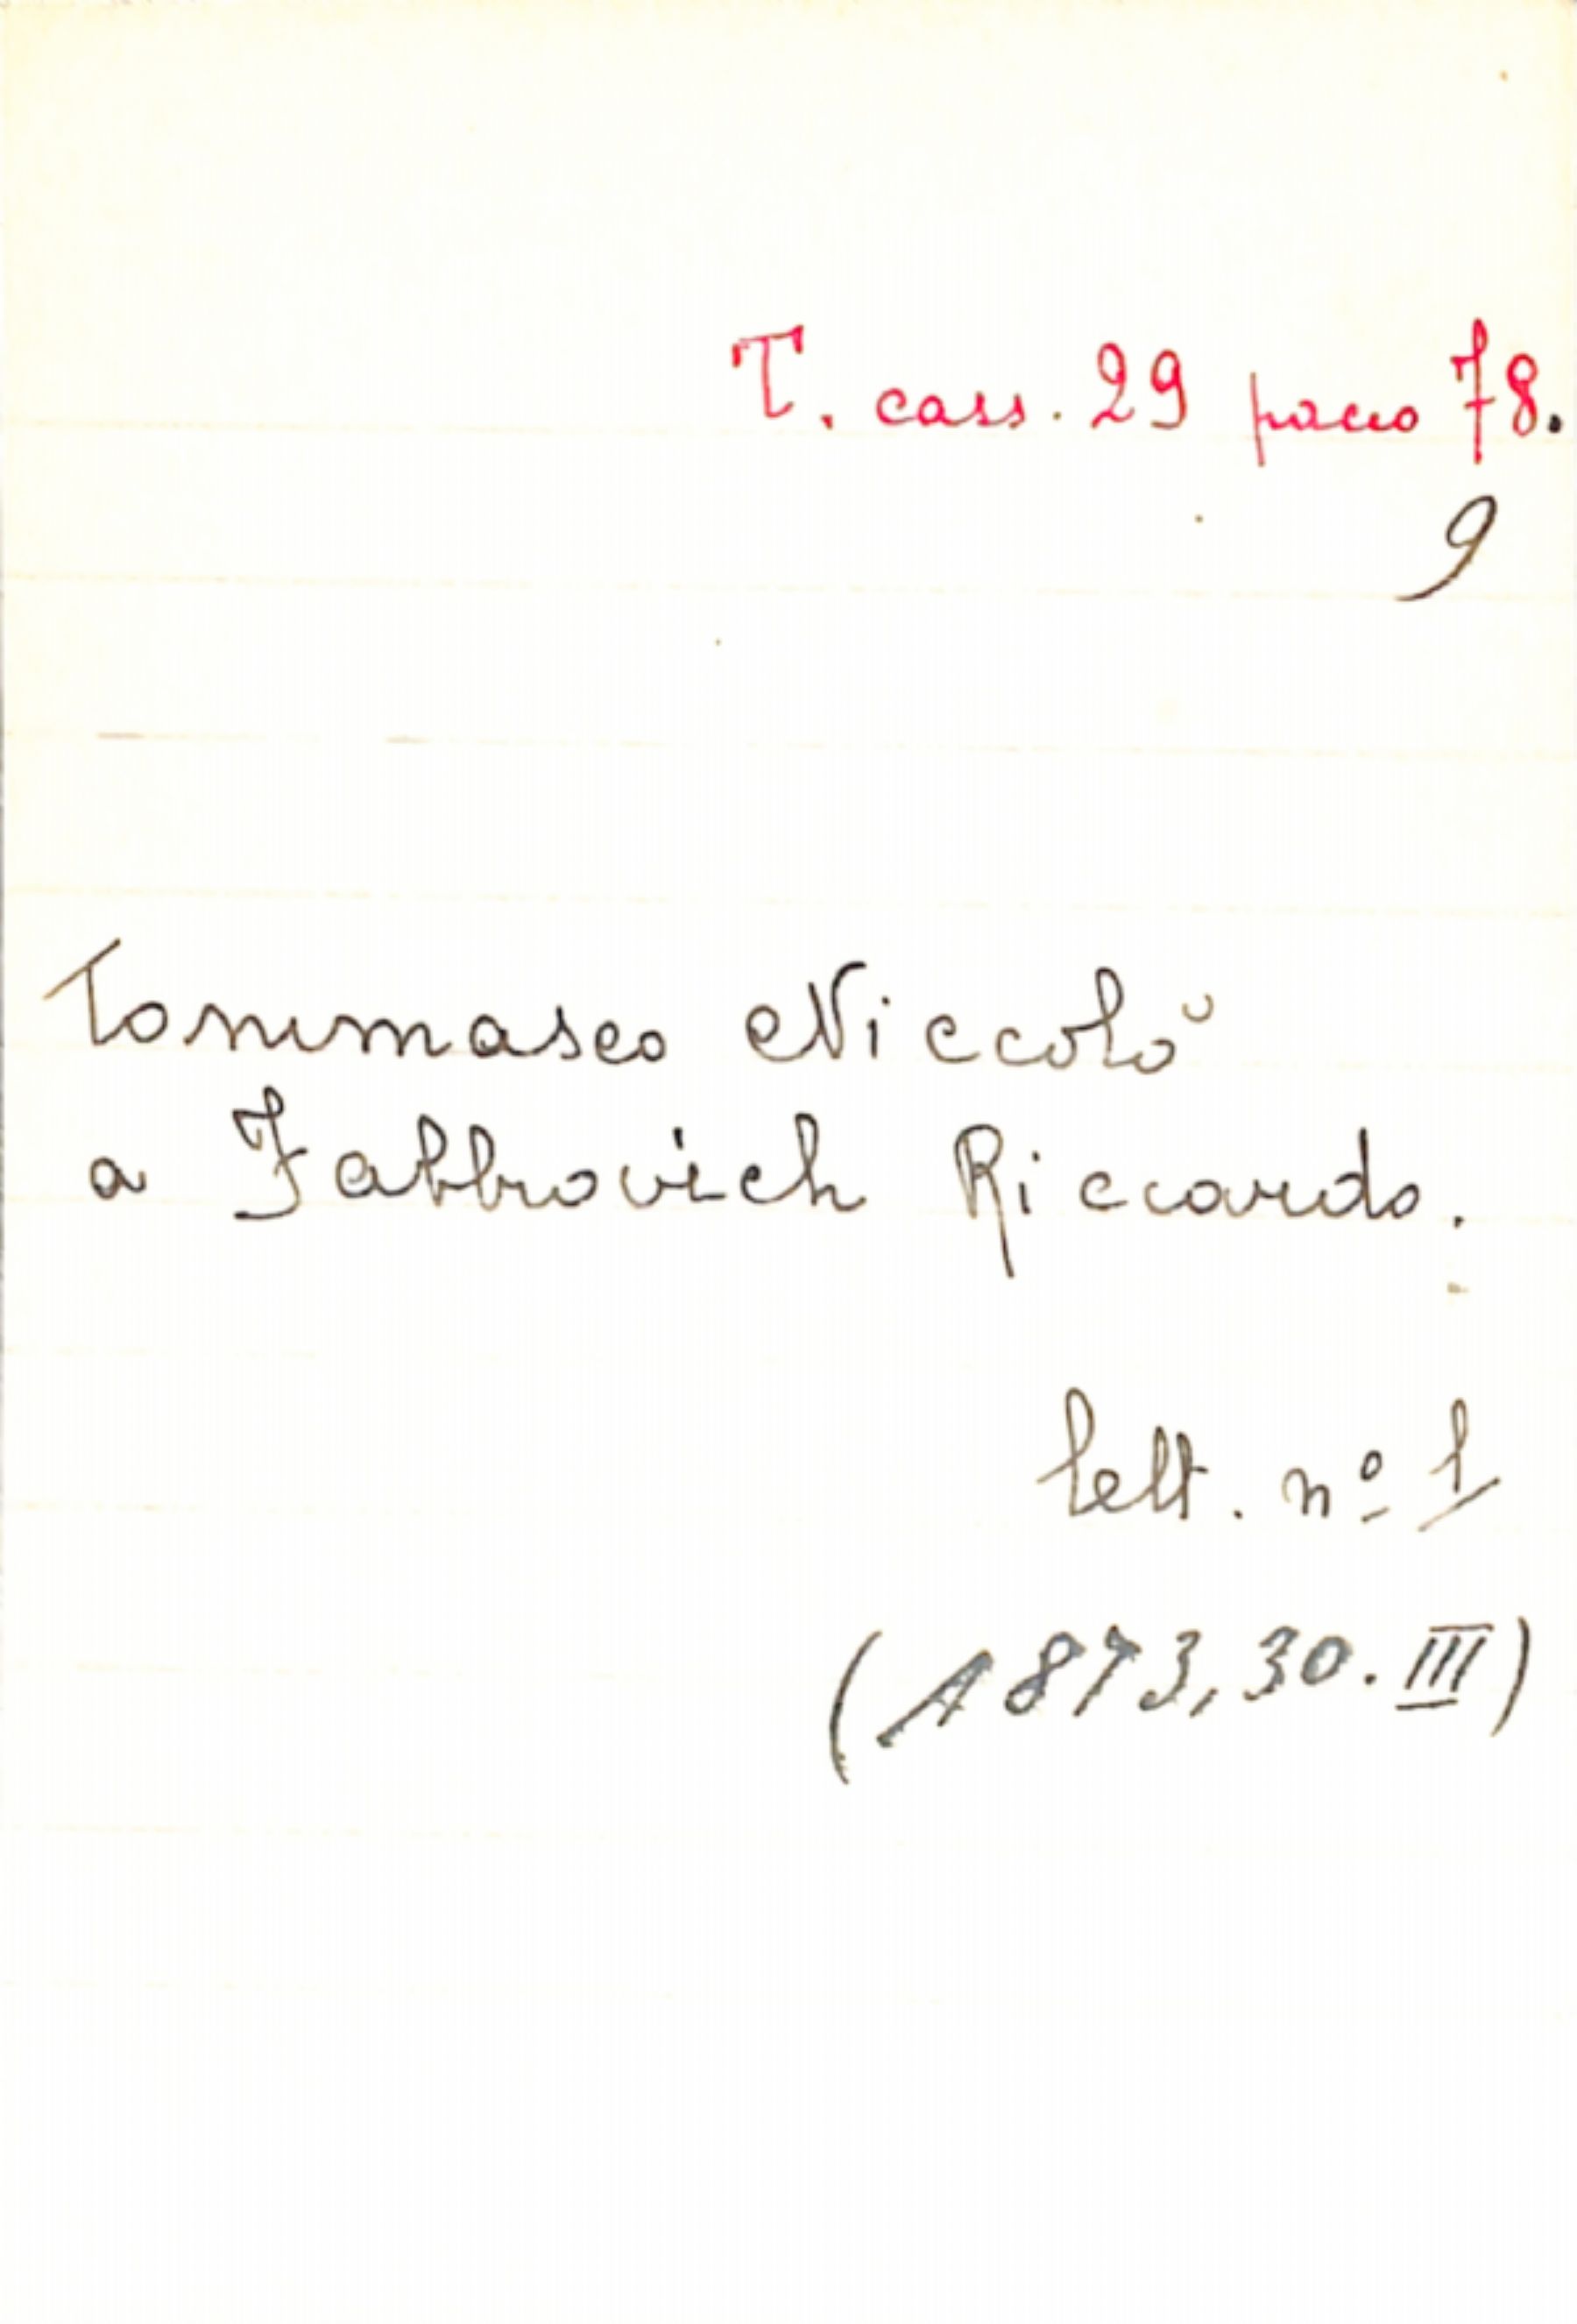 T. cass. 29 pacco 78.
9
Tommaseo Niccolò
a Fabbrovich Riccardo.
lett. nº 1
(1873, 30. III)